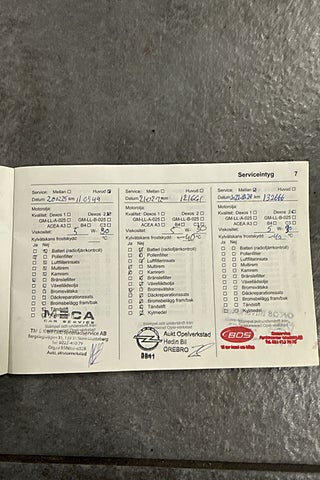 Serviceintyg 7
Service: Mellan Huvud
Datum 201225 km 110349
Motorolja:
Kvalitet: Dexos 1 Dexos 2
GM-LL-A-025 GM-LL-B-025
ACEA A3 B4 C3
Viskositet 5 w 30
Kylvätskans fryskydd °C
Ja Nej
Batteri (radiofjärrkontroll)
Pollenfilter
Luftfilterinsats
Multirem
Kamrem
Bränslefilter
Växellådsolja
Bromsvätska
Däckreparationssats
Bromsbelägg fram/bak
Tändstift
Kylmedel
MECA
CAR SERVICE
Aukt. bilverkstad
Service: Mellan Huvud
Datum 210927 km 121661
Motorolja:
Kvalitet: Dexos 1 Dexos 2
GM-LL-A-025 GM-LL-B-025
ACEA A3 B4 C3
Viskositet 5 w 30
Kylvätskans fryskydd -40 °C
Ja Nej
Batteri (radiofjärrkontroll)
Pollenfilter
Luftfilterinsats
Multirem
Kamrem
Bränslefilter
Växellådsolja
Bromsvätska
Däckreparationssats
Bromsbelägg fram/bak
Tändstift
Kylmedel
Stämpel och underskrift från
Aukt. Opelverkstad
Hedin Bil
ÖREBRO
Service: Mellan Huvud
Datum km 132666
Motorolja:
Kvalitet: Dexos 1 Dexos 2
GM-LL-A-025 GM-LL-B-025
ACEA A3 B4 C3
Viskositet 5 w 30
Kylvätskans fryskydd °C
Ja Nej
Batteri (radiofjärrkontroll)
Pollenfilter
Luftfilterinsats
Multirem
Kamrem
Bränslefilter
Växellådsolja
Bromsvätska
Däckreparationssats
Bromsbelägg fram/bak
Tändstift
Kylmedel
Stämpel och underskrift från
BDS